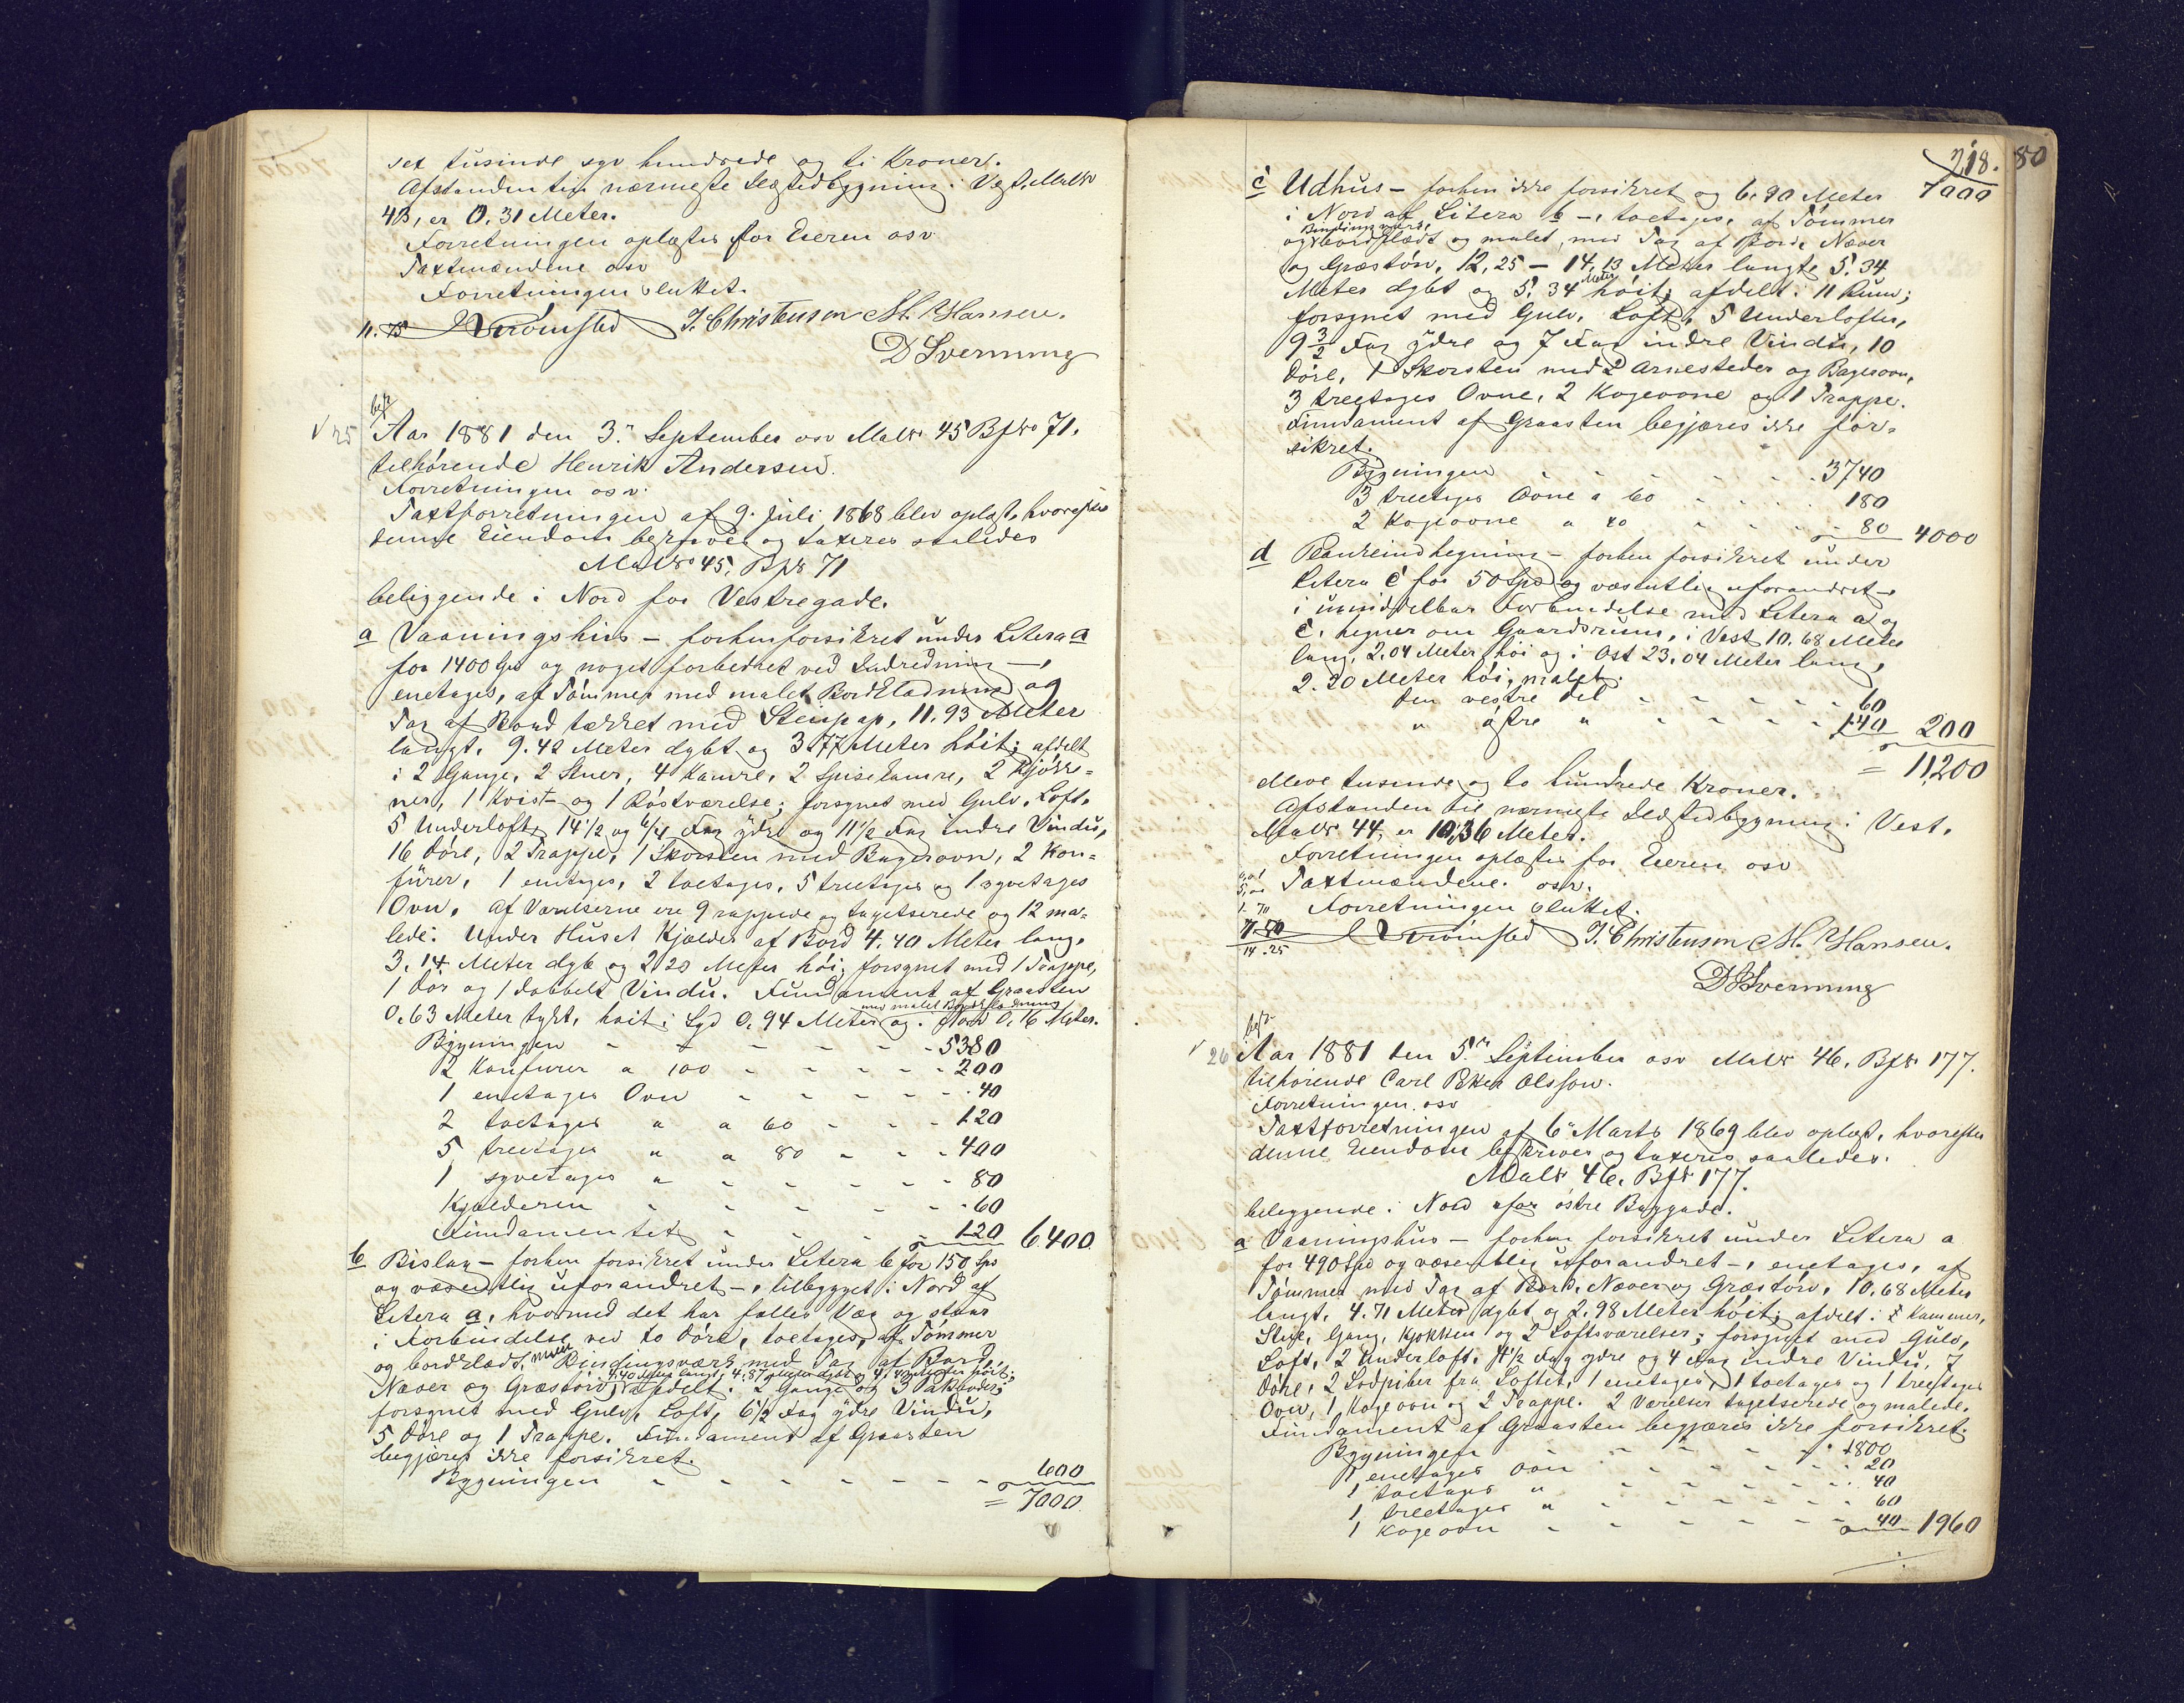 sex tusinde syv hundrede og ti Kroner.
Afstanden til nærmeste Ildstedbygning i Vest, MatNo
43, er 0.31 Meter.
Forretningen oplæstes for Eieren osv
Taxtmændene osv
Forretningen sluttet.
11.75 J. Christensen M. Hansen.
D Sverning
besk
25 Aar 1881 den 3. September osv MatNo 45 BfNo 71.
tilhørende Henrik Andersen.
Forretningen osv.
Taxtforretningen af 9. Juli 1868 blev oplæst, hvorefter
denne Eiendom beskrives og taxeres saaledes
MatNo 45, BfNo 71
beliggende i Nord for Vestregade.
a Vaaningshus – forhen forsikret under Litera a
for 1400 Spd og noget forbedret ved Indredning –,
enetages, af Tømmer med malet Bordklædning og
Tag af Bord tækket med Stenpap, 11.93 Meter
langt, 9.42 Meter dybt og 3.77 Meter høit; afdelt
i 2 Gange, 2 Stuer, 4 Kamre, 2 Spisekamre, 2 Kjøkke-
ner, 1 Kvist- og 1 Røstværelse; forsynet med Gulv, Loft,
5 Underloft, 14 1/2 og 6/4 Fag ydre og 11 1/2 Fag indre Vindu,
16 Døre, 2 Trappe, 1 Skorsten med Bagerovn, 2 Kom-
fürer, 1 enetages, 2 toetages, 5 treetages og 1 syvetages
Ovn. Af Værelserne ere 9 rappede og tapetserede og 12 ma-
lede. Under Huset Kjælder af Bord 4.40 Meter lang,
3.14 Meter dyb og 2.20 Meter høi; forsynet med 1 Trappe,
1 Dør og 1 dobbelt Vindu. Fundament af Graasten
med malet Bordklædning
0.63 Meter tykt, høit i Syd 0.94 Meter og i Nord 0.16 Meter.
Bygningen - - - - - 5380
2 Komfurer a 100 - - - - - 200
1 enetages Ovn - - - - - 40
2 toetages " a 60 - - - 120
5 treetages " a 80 - - - 400
1 syvetages " - - - - - 80
Kjælderen - - - - - 60
Fundamentet - - - - 120 6400
b Bislag – forhen forsikret under Litera b for 150 Spd
og væsentlig uforandret –, tilbygget i Nord af
Litera a, hvormed det har fælles Væg og staar
i Forbindelse ved to Døre, toetages, af Tømmer
og bordklædt Bindingsværk med Tag af Bord,
4.40 Meter langt, 4.87 Meter dybt og 4.40 Meter høit;
Næver og Græstörv, afdelt i 2 Gange og 3 Pakboder;
forsynet med Gulv, Loft, 6 1/2 Fag ydre Vindu,
5 Døre og 1 Trappe. Fundament af Graasten
begjæres ikke forsikret.
Bygningen - - - - - - - 600
= 7000
218. 80
7000
c Udhus – forhen ikke forsikret og 6.90 Meter
i Nord af Litera b –, toetages, af Tømmer
Bindingsværk,
og bordklædt og malet, med Tag af Bord, Næver
og Græstörv, 12,25 – 14,13 Meter langt, 5.34
Meter dybt og 5.34 Meter höit; afdelt i 11 Rum;
forsynet med Gulv, Loft, 5 Underlofter,
9 3/2 Fag ydre og 7 Fag indre Vindu, 10
Døre, 1 Skorsten med 2 Arnesteder og Bagerovn,
3 treetages Ovne, 2 Kogeovne og 1 Trappe.
Fundament af Graasten begjæres ikke for-
sikret.
Bygningen - - - - - 3740
3 treetages Ovne a 60 - - - 180
2 Kogeovne a 40 - - - 80 4000
d Plankeindhegning – forhen forsikret under
Litera c for 50 Spd og væsentlig uforandret –,
i umiddelbar Forbindelse med Litera a og
c, hegner om Gaardsrum, i Vest 10.68 Meter
lang, 2.04 Meter høi og i Ost 23.04 Meter lang,
2.20 Meter høi, malet.
Den vestre Del - - - - - 60
" østre " - - - - - 140 200
= 11200
elleve tusinde og to hundrede Kroner.
Afstanden til nærmeste Ildstedbygning i Vest,
MatNo 44, er 10,36 Meter.
Forretningen oplæstes for Eieren osv
Taxtmændene osv.
Forretningen sluttet.
14.25 J. Christensen M. Hansen.
D Sverning
besk
26 Aar 1881 den 5. September osv MatNo 46. BfNo 177.
tilhörende Carl Peter Olsson.
Forretningen osv
Taxtforretningen af 6 Marts 1869 blev oplæst, hvorefter
denne Eiendom beskrives og taxeres saaledes.
MatNo 46. BfNo 177.
beliggende i Nord for østre Baggade.
a Vaaningshus – forhen forsikret under Litera a
for 490 Spd og væsentlig uforandret –, enetages, af
Tømmer med Tag af Bord, Næver og Græstörv, 10.68 Meter
langt, 4.71 Meter dybt og 2.98 Meter høit; afdelt i 2 Kammer,
Stue, Gang, Kjøkken og 2 Loftsværelser; forsynet med Gulv,
Loft, 2 Underloft, 11 1/2 Fag ydre og 4 Fag indre Vindu, 7
Døre, 2 Lodpiber fra Loftet, 1 enetages, 1 toetages og 1 treetages
Ovn, 1 Kogeovn og 2 Trappe. 2 Værelser tapetserede og malede.
Fundament af Graasten begjæres ikke forsikret.
Bygningen - - - - - 1800
1 enetages Ovn - - - - - 20
1 toetages " - - - - - 40
1 treetages " - - - - - 60
1 Kogeovn - - - - - 40 1960